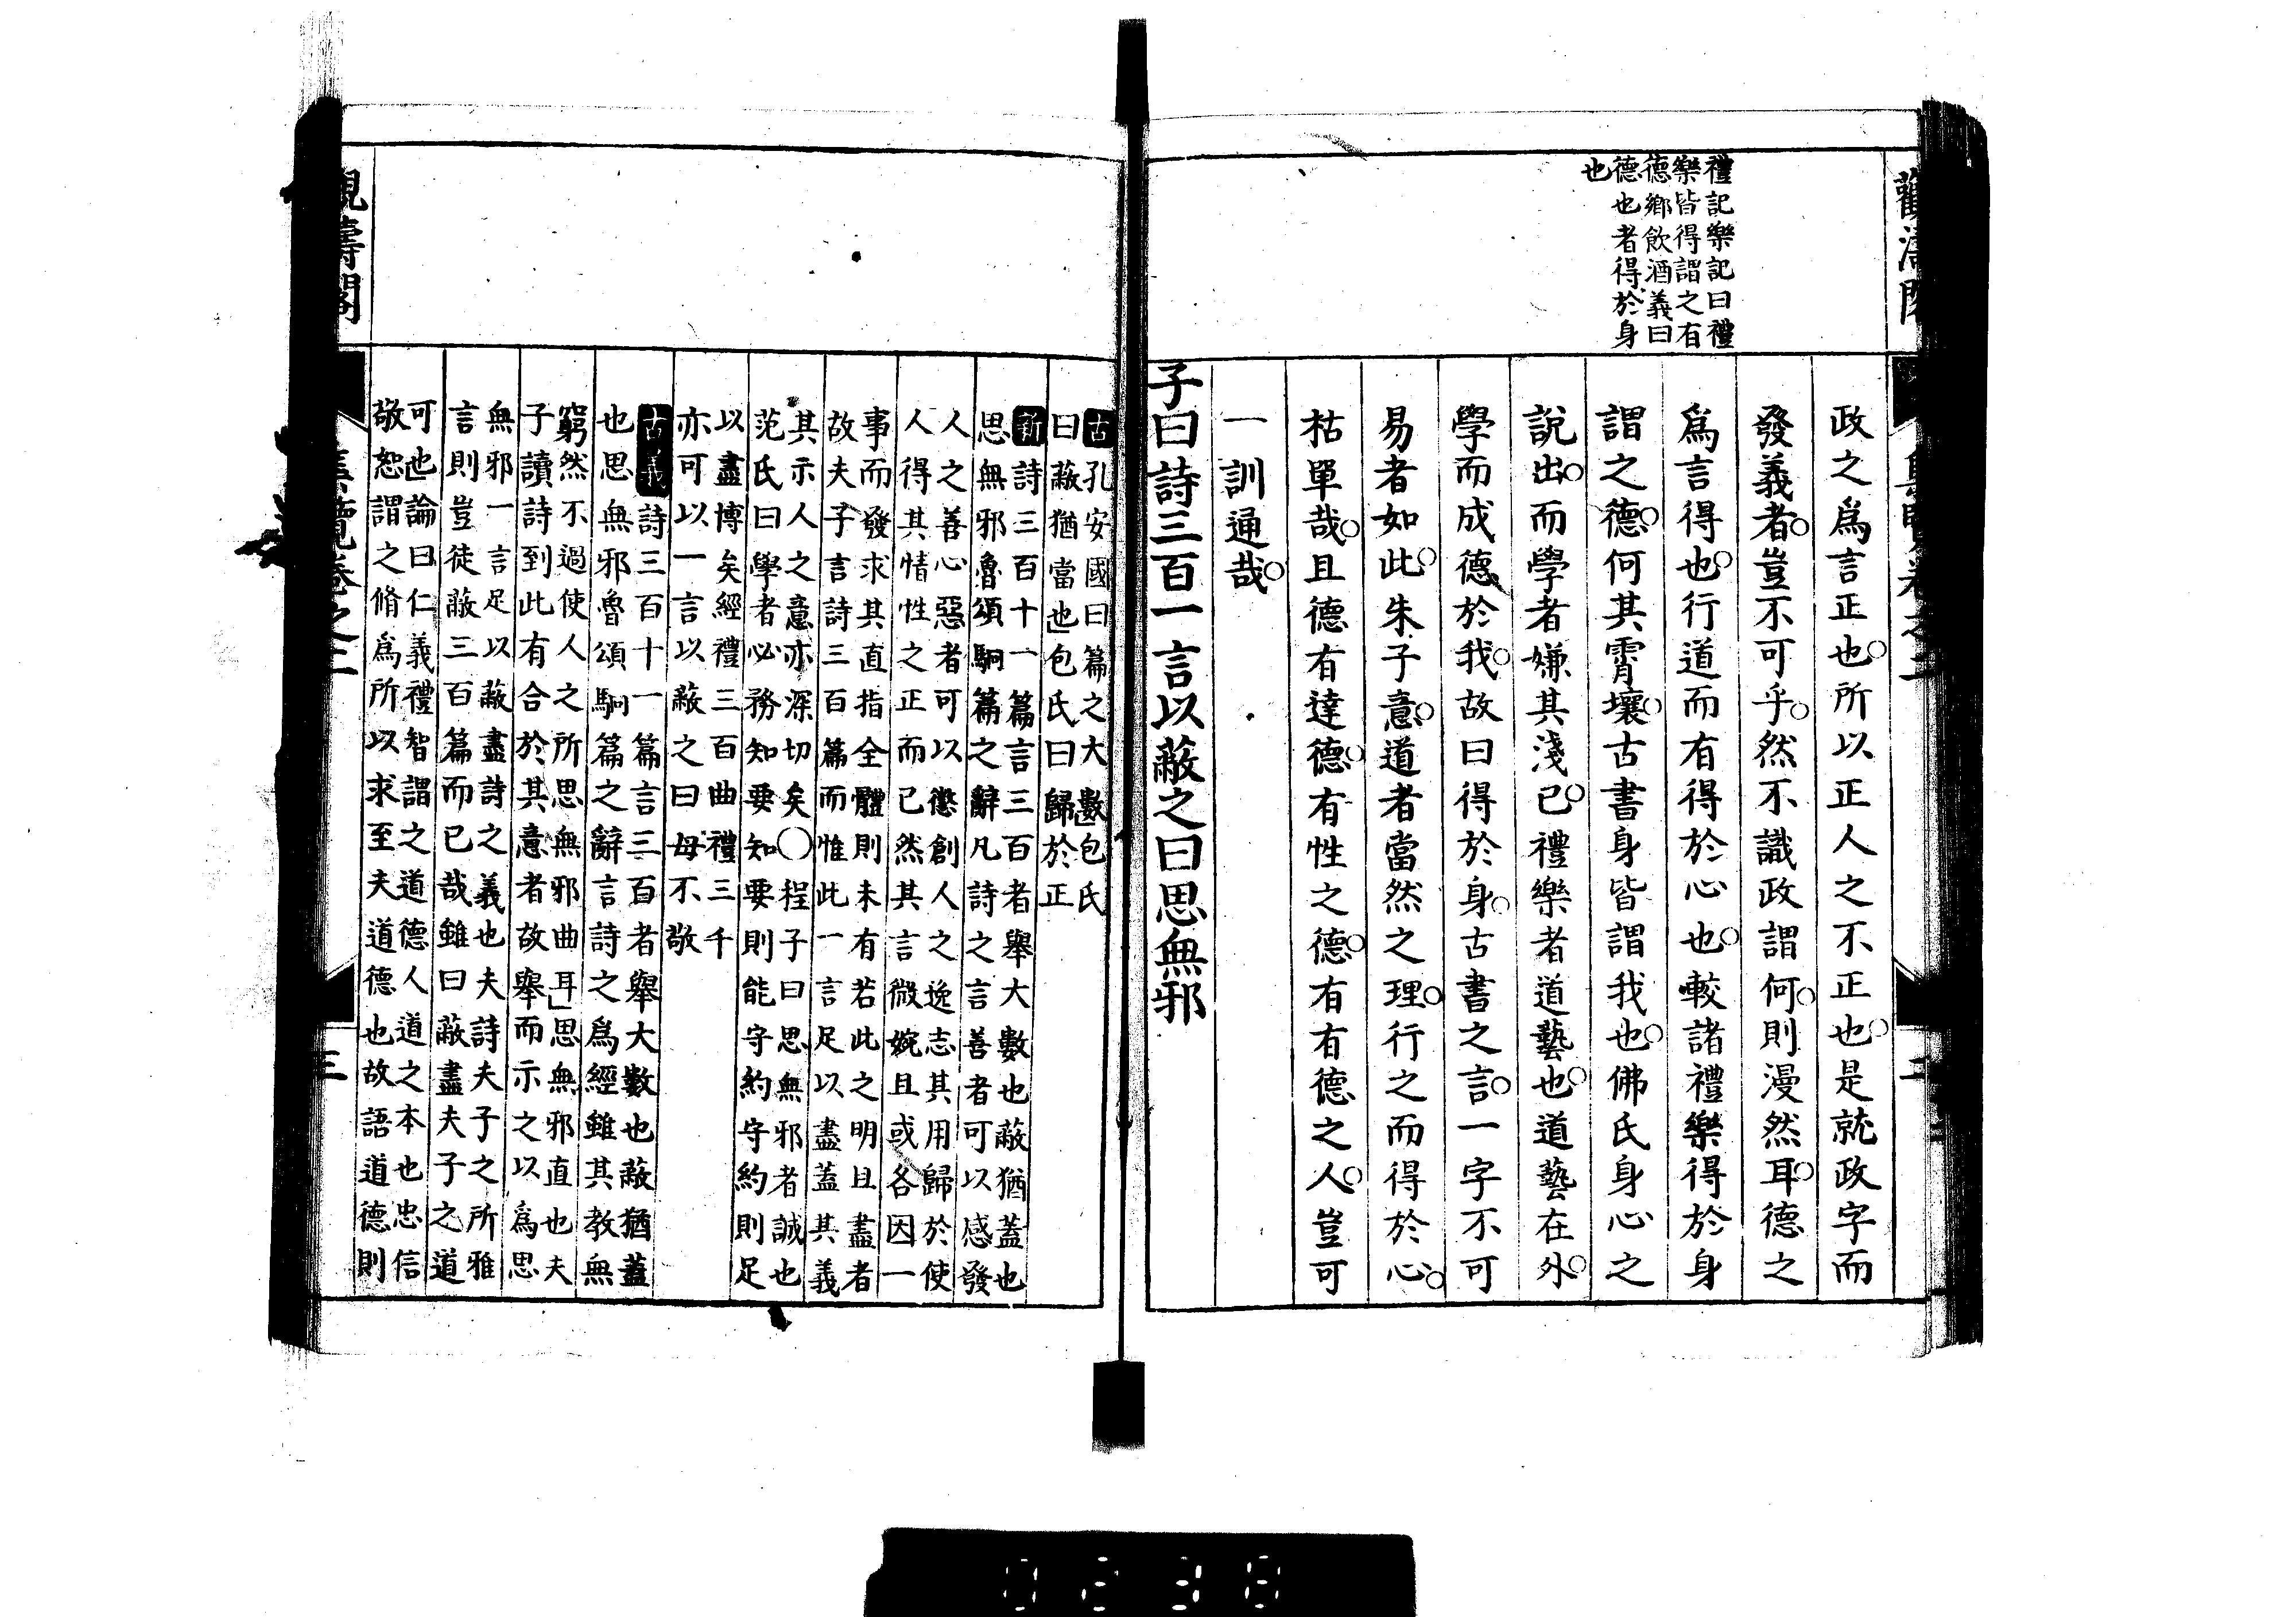 禮記樂記曰禮
樂皆得謂之有
德鄉飲酒義曰
德也者得於身
也
政之爲言正也所以正人之不正也是就政字而
發義者豈不可乎然不識政謂何則漫然耳德之
爲言得也行道而有得於心也較諸禮樂得於身
謂之德何其霄壤古書身皆謂我也佛氏身心之
說出而學者嫌其淺已禮樂者道藝也道藝在外
學而成德於我故曰得於身古書之言一字不可
易者如此朱子意道者當然之理行之而得於心
枯單哉且德有達德有性之德有有德之人豈可
一訓通哉
子曰詩三百一言以蔽之曰思無邪
古孔安國曰篇之大數包氏
曰蔽猶當也包氏曰歸於正
新詩三百十一篇言三百者舉大數也蔽猶蓋也
思無邪魯頌駉篇之辭凡詩之言善者可以感發
人之善心惡者可以懲創人之逸志其用歸於使
人得其情性之正而已然其言微婉且或各因一
事而發求其直指全體則未有若此之明且盡者
故夫子言詩三百篇而惟此一言足以盡蓋其義
其示人之意亦深切矣○程子曰思無邪者誠也
范氏曰學者必務知要知要則能守約守約則足
以盡博矣經禮三百曲禮三千
亦可以一言以蔽之曰毋不敬
古義詩三百十一篇言三百者舉大數也蔽猶蓋
也思無邪魯頌駉篇之辭言詩之爲經雖其教無
窮然不過使人之所思無邪曲耳思無邪直也夫
子讀詩到此有合於其意者故舉而示之以爲思
無邪一言足以蔽盡詩之義也夫詩夫子之所雅
言則豈徒蔽三百篇而已哉雖曰蔽盡夫子之道
可也論曰仁義禮智謂之道德人道之本也忠信
敬恕謂之脩爲所以求至夫道德也故語道德則
三
0238